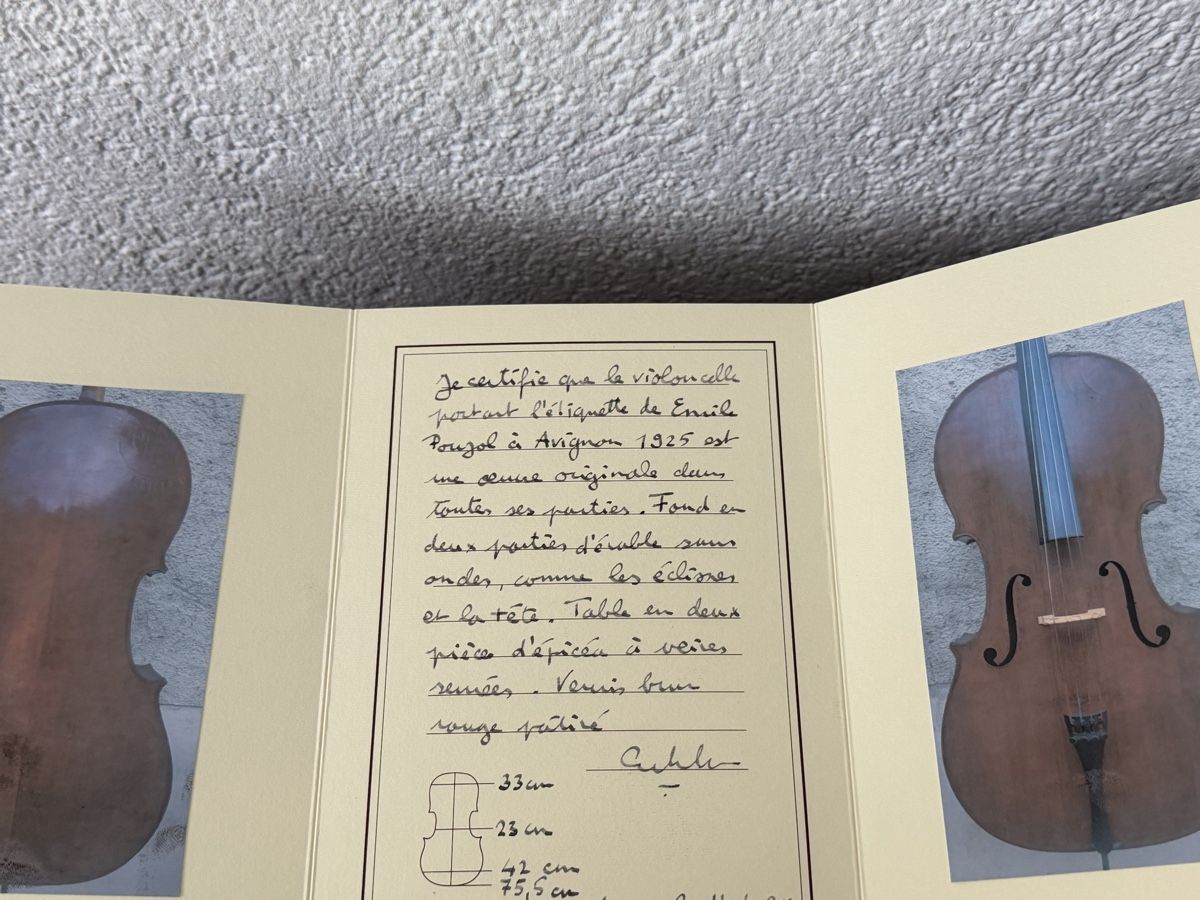 Je certifie que le violoncelle
portant l'étiquette de Emile
Poujol à Avignon 1925 est
une œuvre originale dans
toutes ses parties. Fond en
deux parties d'érable sans
ondes, comme les éclisses
et la tête. Table en deux
pièce d'épicéa à veines
serrées. Vernis brun
rouge patiné
33 cm
23 cm
42 cm
75,5 cm